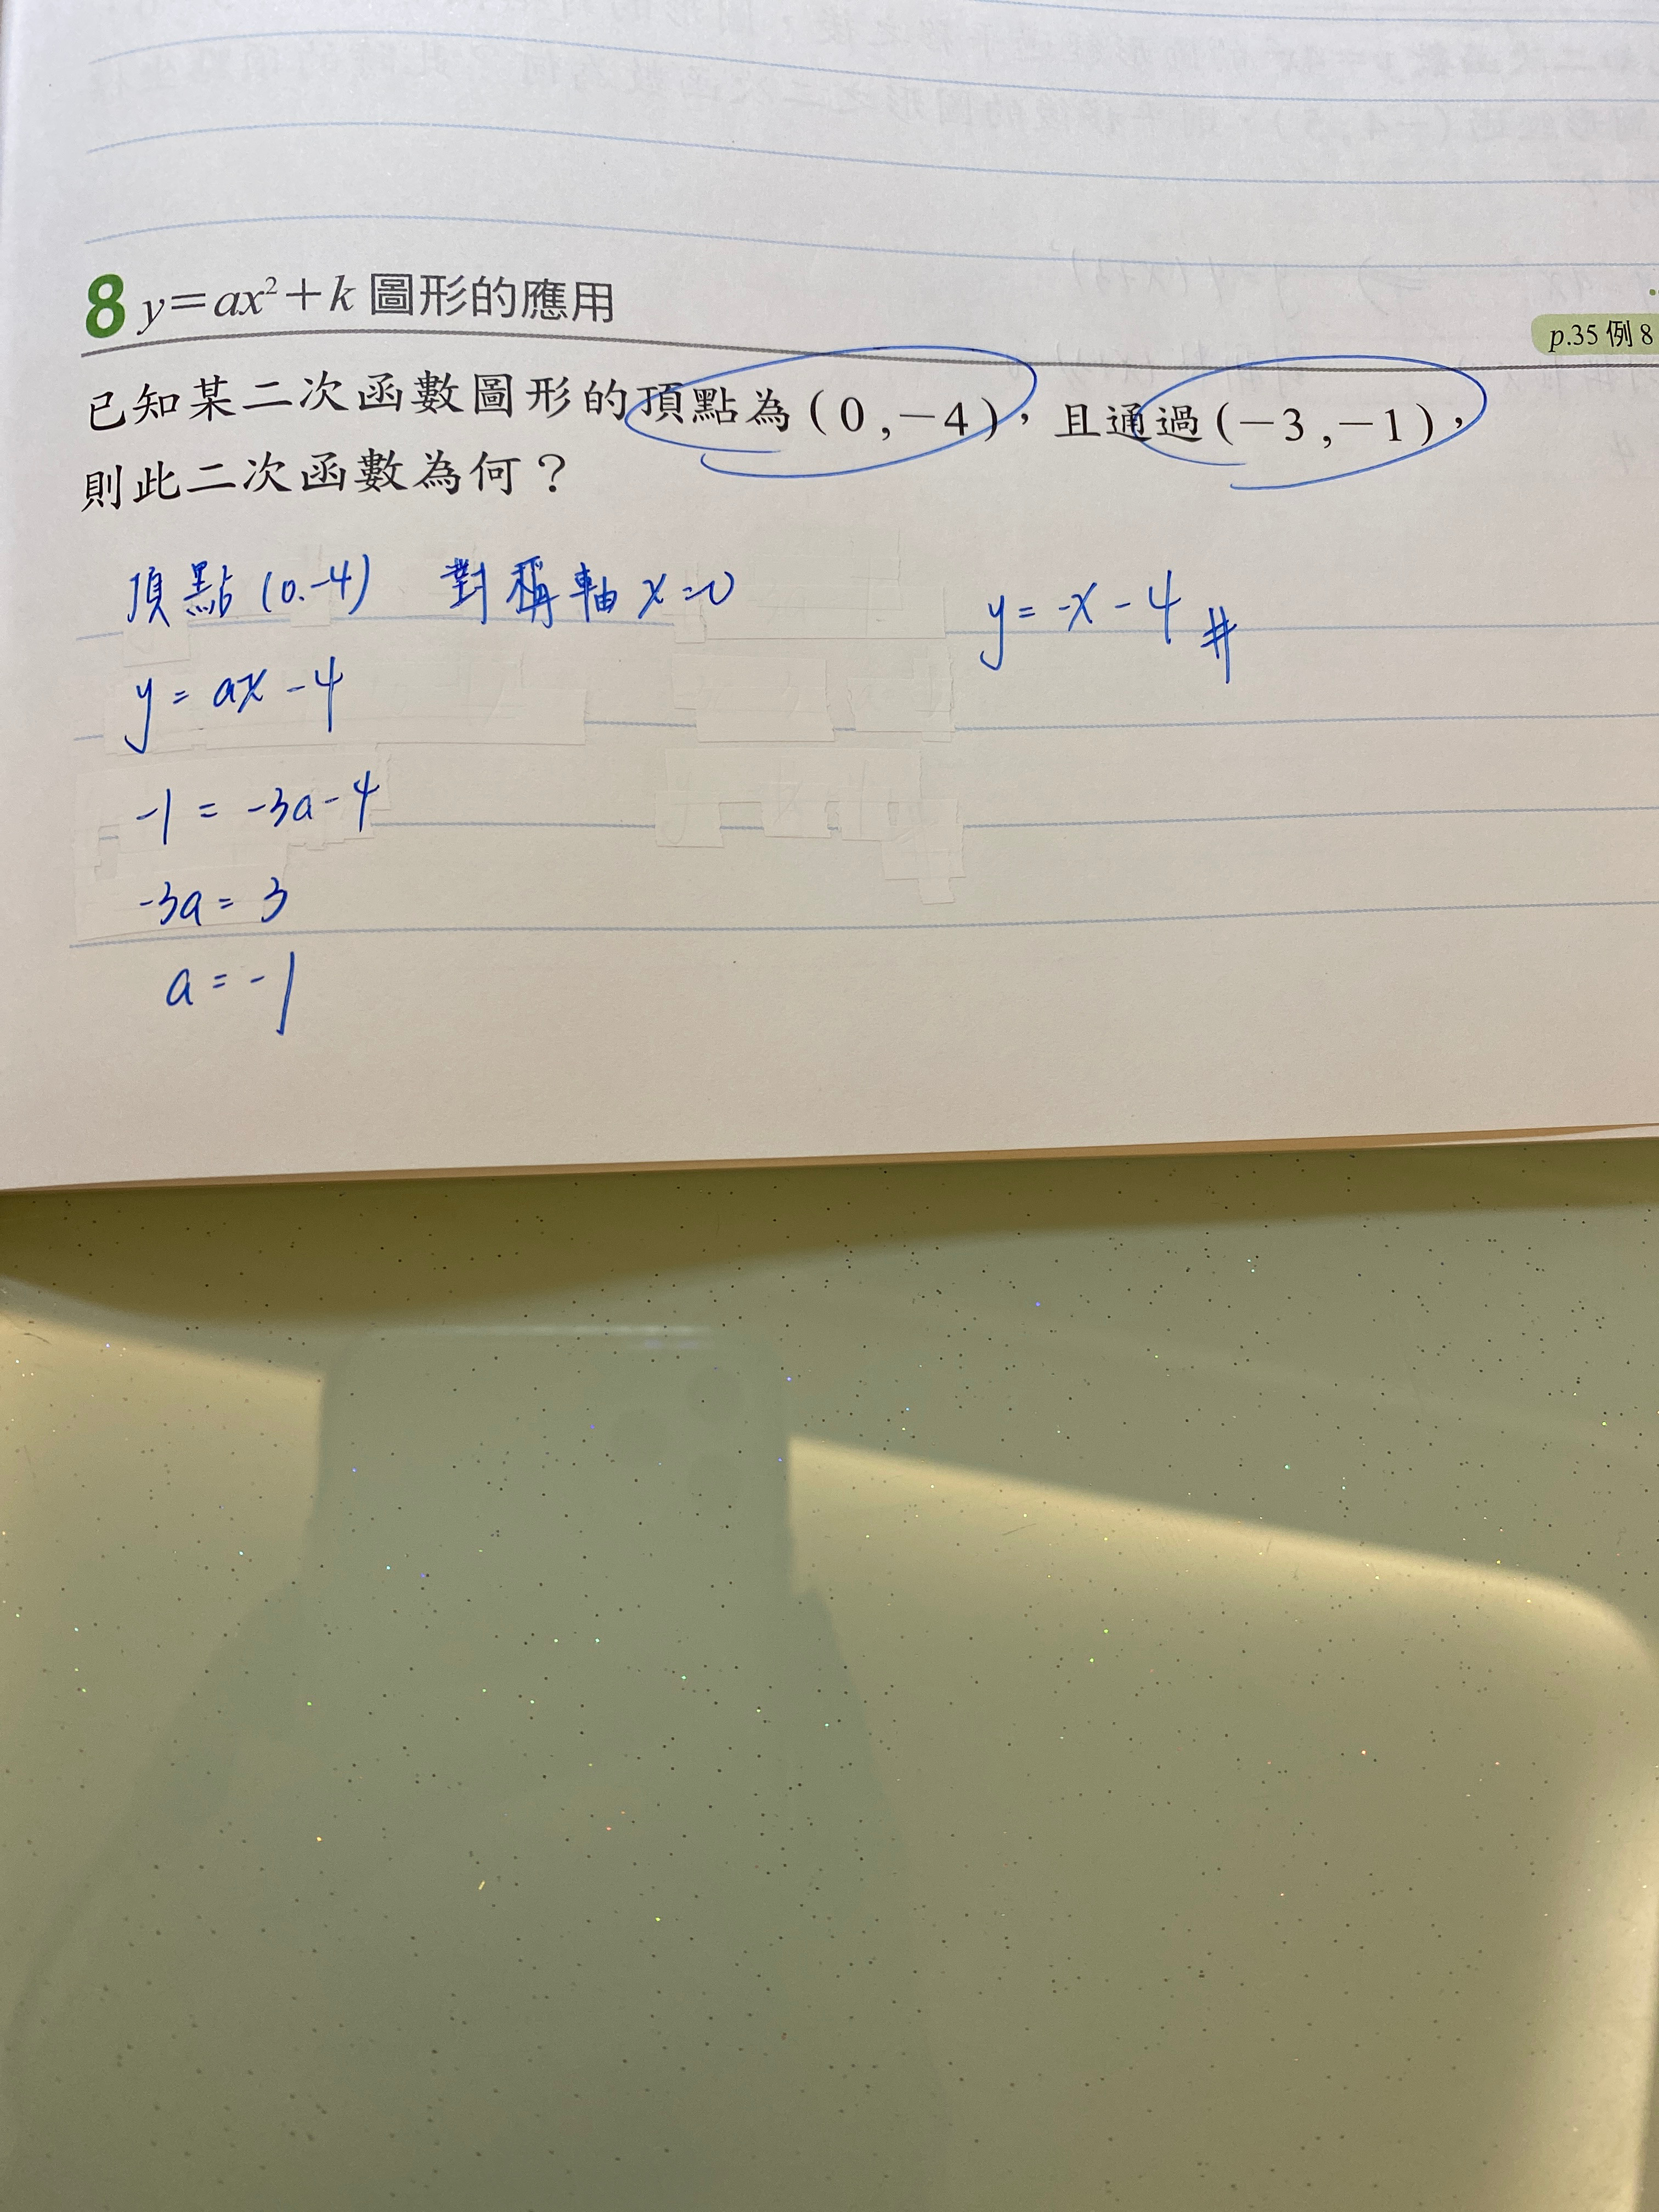 8 y=ax²+k 圖形的應用
p.35 例 8
已知某二次函數圖形的頂點為(0,-4),且通過(-3,-1),
則此二次函數為何?
頂點(0.-4) 對稱軸 x=0
y = -x - 4 #
y = ax - 4
-1 = -3a - 4
-3a = 3
a = -1